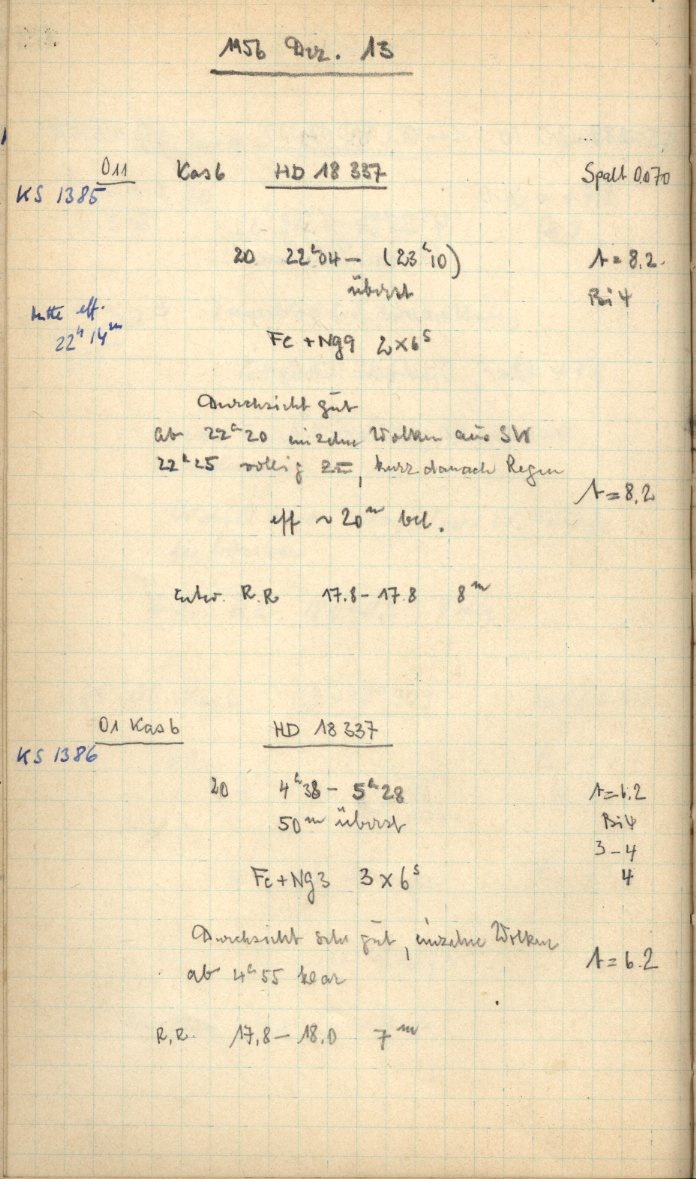 1956 Dez. 13
011 Kas b HD 18 337 Spalt 0.070
KS 1385
20 22ʰ04 – (23ʰ10) A = 8.2
überst Bi 4
Mitte eff.
22ʰ 14ᵐ
Fe + Ng 9 2×6ˢ
Durchsicht gut
ab 22ʰ20 einzelne Wolken aus SW
22ʰ25 völlig zu, kurz danach Regen
A = 8.2
eff ~ 20ᵐ bel.
Entw. R.R 17.8 – 17.8 8ᵐ
01 Kas b HD 18 337
KS 1386
20 4ʰ38 – 5ʰ28 A = 6.2
50ᵐ überst Bi 4
3 – 4
Fe + Ng 3 3×6ˢ 4
Durchsicht sehr gut, einzelne Wolken
ab 4ʰ55 klar A = 6.2
R.R. 17,8 – 18,0 7ᵐ